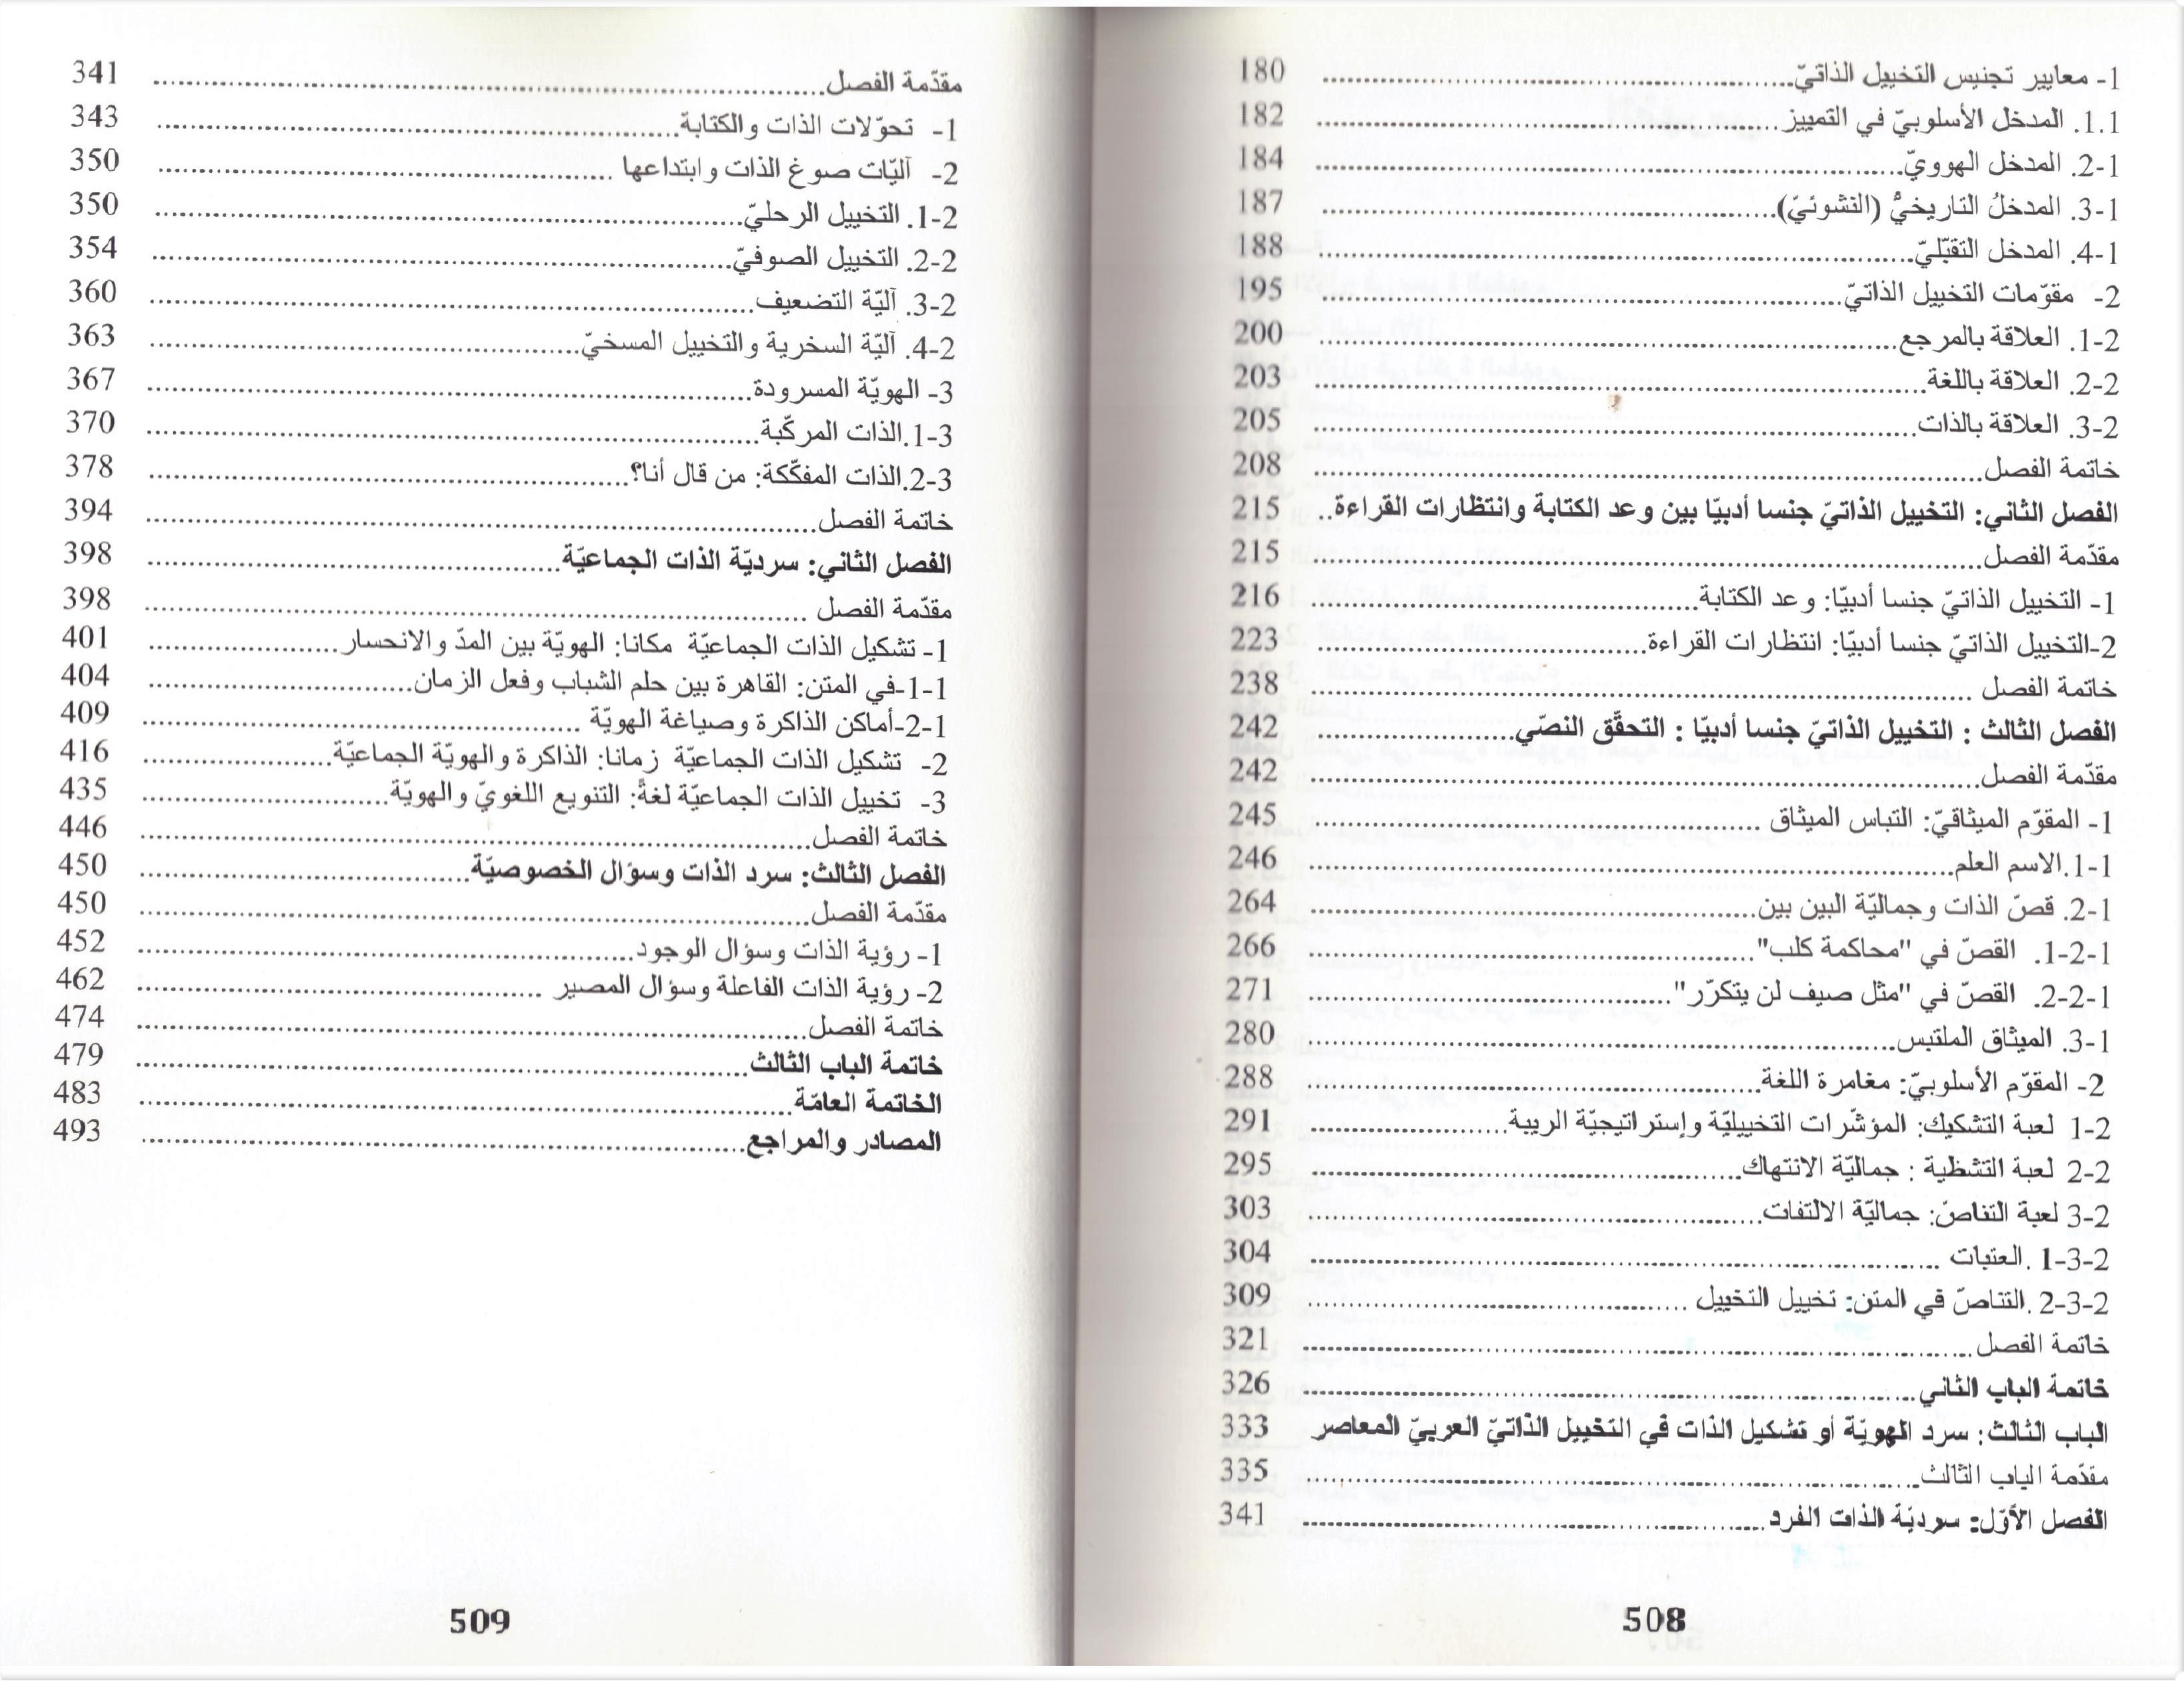 1- معايير تجنيس التخييل الذاتيّ.......... 180
1.1. المدخل الأسلوبيّ في التمييز.......... 182
1-2. المدخل الهوويّ.......... 184
1-3. المدخلُ التاريخيُّ (النشوئيّ).......... 187
1-4. المدخل التقبّليّ.......... 188
2- مقوّمات التخييل الذاتيّ.......... 195
2-1. العلاقة بالمرجع.......... 200
2-2. العلاقة باللغة.......... 203
2-3. العلاقة بالذات.......... 205
خاتمة الفصل.......... 208
الفصل الثاني: التخييل الذاتيّ جنسا أدبيّا بين وعد الكتابة وانتظارات القراءة.. 215
مقدّمة الفصل.......... 215
1- التخييل الذاتيّ جنسا أدبيّا: وعد الكتابة.......... 216
2-التخييل الذاتيّ جنسا أدبيّا: انتظارات القراءة.......... 223
خاتمة الفصل .......... 238
الفصل الثالث : التخييل الذاتيّ جنسا أدبيّا : التحقّق النصّي.......... 242
مقدّمة الفصل.......... 242
1- المقوّم الميثاقيّ: التباس الميثاق .......... 245
1-1.الاسم العلم.......... 246
1-2. قصّ الذات وجماليّة البين بين.......... 264
1-2-1. القصّ في "محاكمة كلب".......... 266
1-2-2. القصّ في "مثل صيف لن يتكرّر".......... 271
1-3. الميثاق الملتبس.......... 280
2- المقوّم الأسلوبيّ: مغامرة اللغة.......... 288
2-1 لعبة التشكيك: المؤشّرات التخييليّة وإستراتيجيّة الريبة.......... 291
2-2 لعبة التشظية : جماليّة الانتهاك.......... 295
2-3 لعبة التناصّ: جماليّة الالتفات.......... 303
2-3-1 .العتبات .......... 304
2-3-2 .التناصّ في المتن: تخييل التخييل .......... 309
خاتمة الفصل.......... 321
خاتمة الباب الثاني.......... 326
الباب الثالث: سرد الهويّة أو تشكيل الذات في التخييل الذاتيّ العربيّ المعاصر 333
مقدّمة الباب الثالث.......... 335
الفصل الأوّل: سرديّة الذات الفرد.......... 341
508
مقدّمة الفصل.......... 341
1- تحوّلات الذات والكتابة.......... 343
2- آليّات صوغ الذات وابتداعها .......... 350
2-1. التخييل الرحليّ.......... 350
2-2. التخييل الصوفيّ.......... 354
2-3. آليّة التضعيف.......... 360
2-4. آليّة السخرية والتخييل المسخيّ.......... 363
3- الهويّة المسرودة.......... 367
3-1.الذات المركّبة.......... 370
3-2.الذات المفكّكة: من قال أنا؟.......... 378
خاتمة الفصل.......... 394
الفصل الثاني: سرديّة الذات الجماعيّة.......... 398
مقدّمة الفصل .......... 398
1- تشكيل الذات الجماعيّة مكانا: الهويّة بين المدّ والانحسار.......... 401
1-1-في المتن: القاهرة بين حلم الشباب وفعل الزمان.......... 404
1-2-أماكن الذاكرة وصياغة الهويّة .......... 409
2- تشكيل الذات الجماعيّة زمانا: الذاكرة والهويّة الجماعيّة.......... 416
3- تخييل الذات الجماعيّة لغةً: التنويع اللغويّ والهويّة.......... 435
خاتمة الفصل.......... 446
الفصل الثالث: سرد الذات وسؤال الخصوصيّة.......... 450
مقدّمة الفصل.......... 450
1- رؤية الذات وسؤال الوجود.......... 452
2- رؤية الذات الفاعلة وسؤال المصير .......... 462
خاتمة الفصل.......... 474
خاتمة الباب الثالث.......... 479
الخاتمة العامّة.......... 483
المصادر والمراجع.......... 493
509